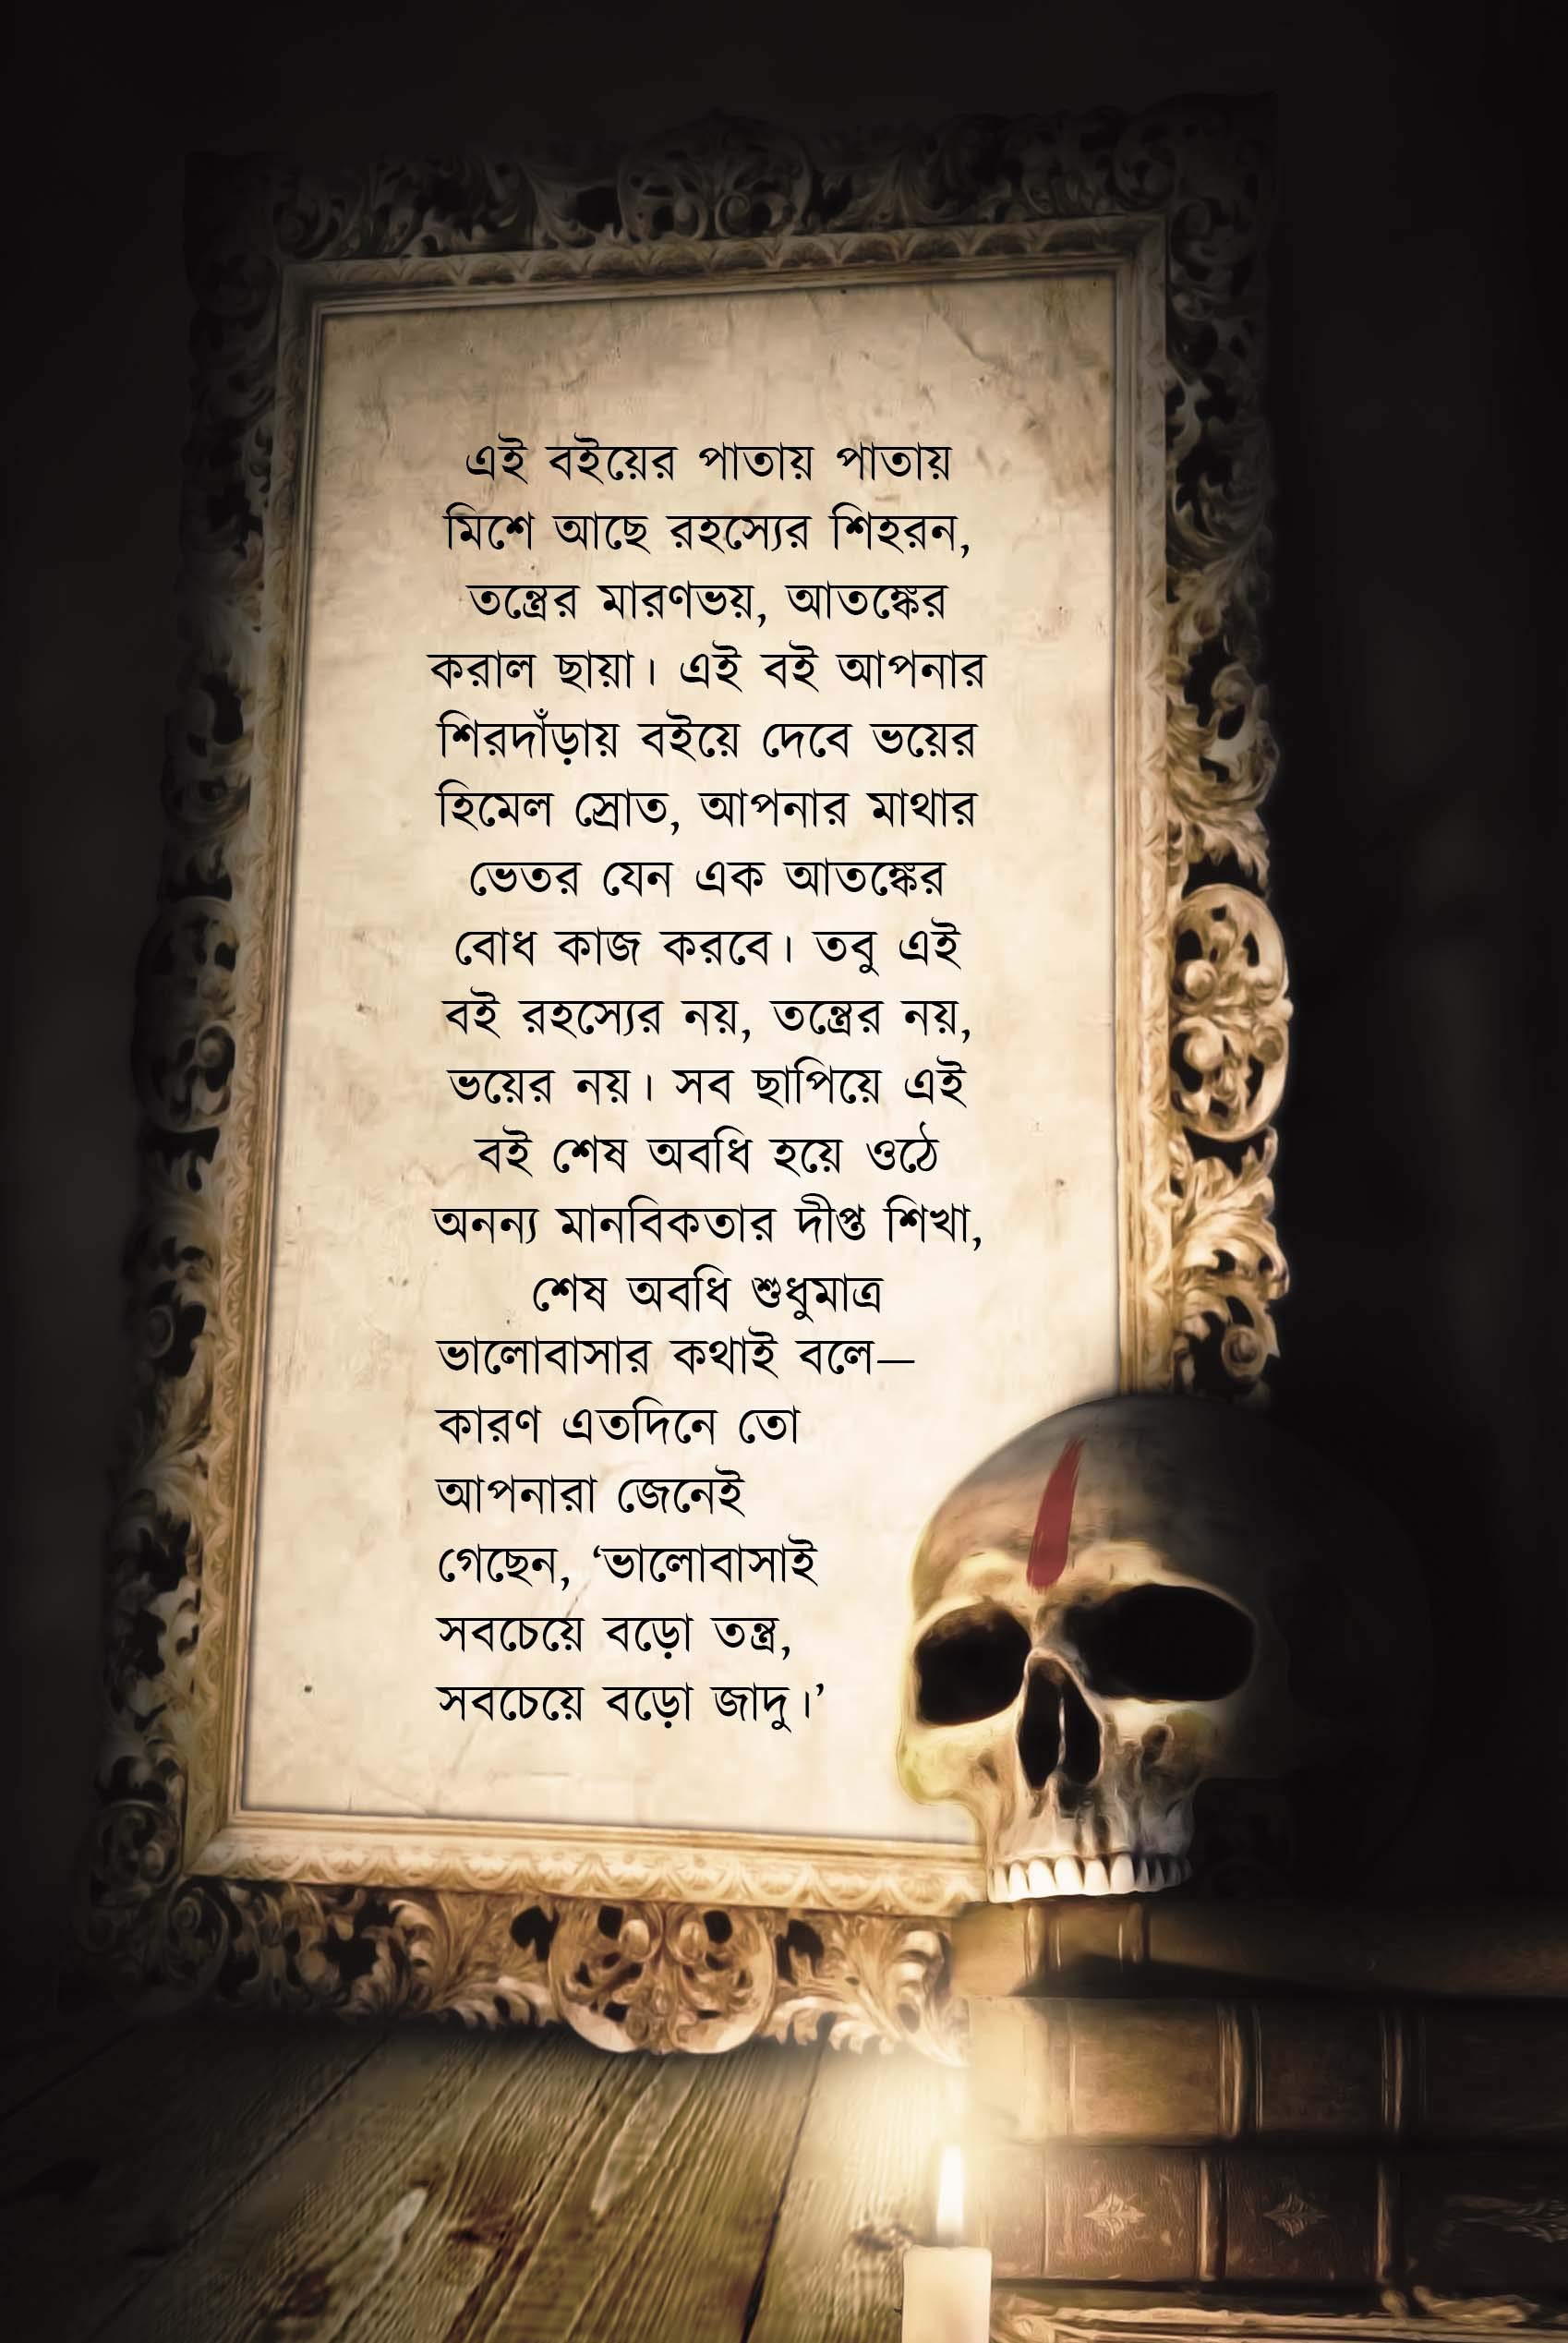 এই বইয়ের পাতায় পাতায়
মিশে আছে রহস্যের শিহরন,
তন্ত্রের মারণভয়, আতঙ্কের
করাল ছায়া। এই বই আপনার
শিরদাঁড়ায় বইয়ে দেবে ভয়ের
হিমেল স্রোত, আপনার মাথার
ভেতর যেন এক আতঙ্কের
বোধ কাজ করবে। তবু এই
বই রহস্যের নয়, তন্ত্রের নয়,
ভয়ের নয়। সব ছাপিয়ে এই
বই শেষ অবধি হয়ে ওঠে
অনন্য মানবিকতার দীপ্ত শিখা,
শেষ অবধি শুধুমাত্র
ভালোবাসার কথাই বলে—
কারণ এতদিনে তো
আপনারা জেনেই
গেছেন, ‘ভালোবাসাই
সবচেয়ে বড়ো তন্ত্র,
সবচেয়ে বড়ো জাদু।’